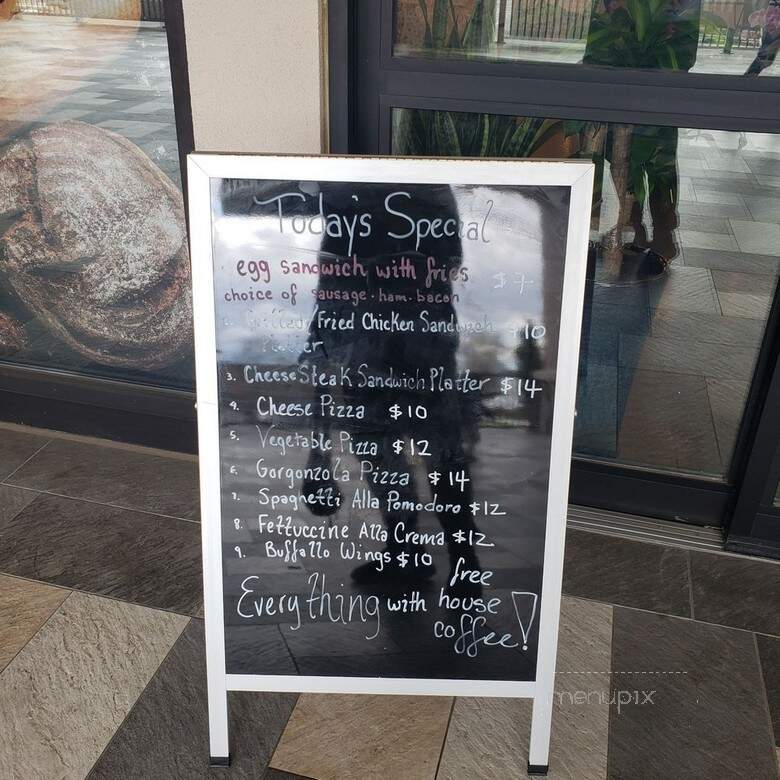 Today's Special
egg sandwich with fries $7
choice of sausage · ham · bacon
2. Grilled/Fried Chicken Sandwich $10
Platter
3. Cheese Steak Sandwich Platter $14
4. Cheese Pizza $10
5. Vegetable Pizza $12
6. Gorgonzola Pizza $14
7. Spaghetti Alla Pomodoro $12
8. Fettuccine Alla Crema $12
9. Buffallo Wings $10
free
Everything with house
coffee!
menupix